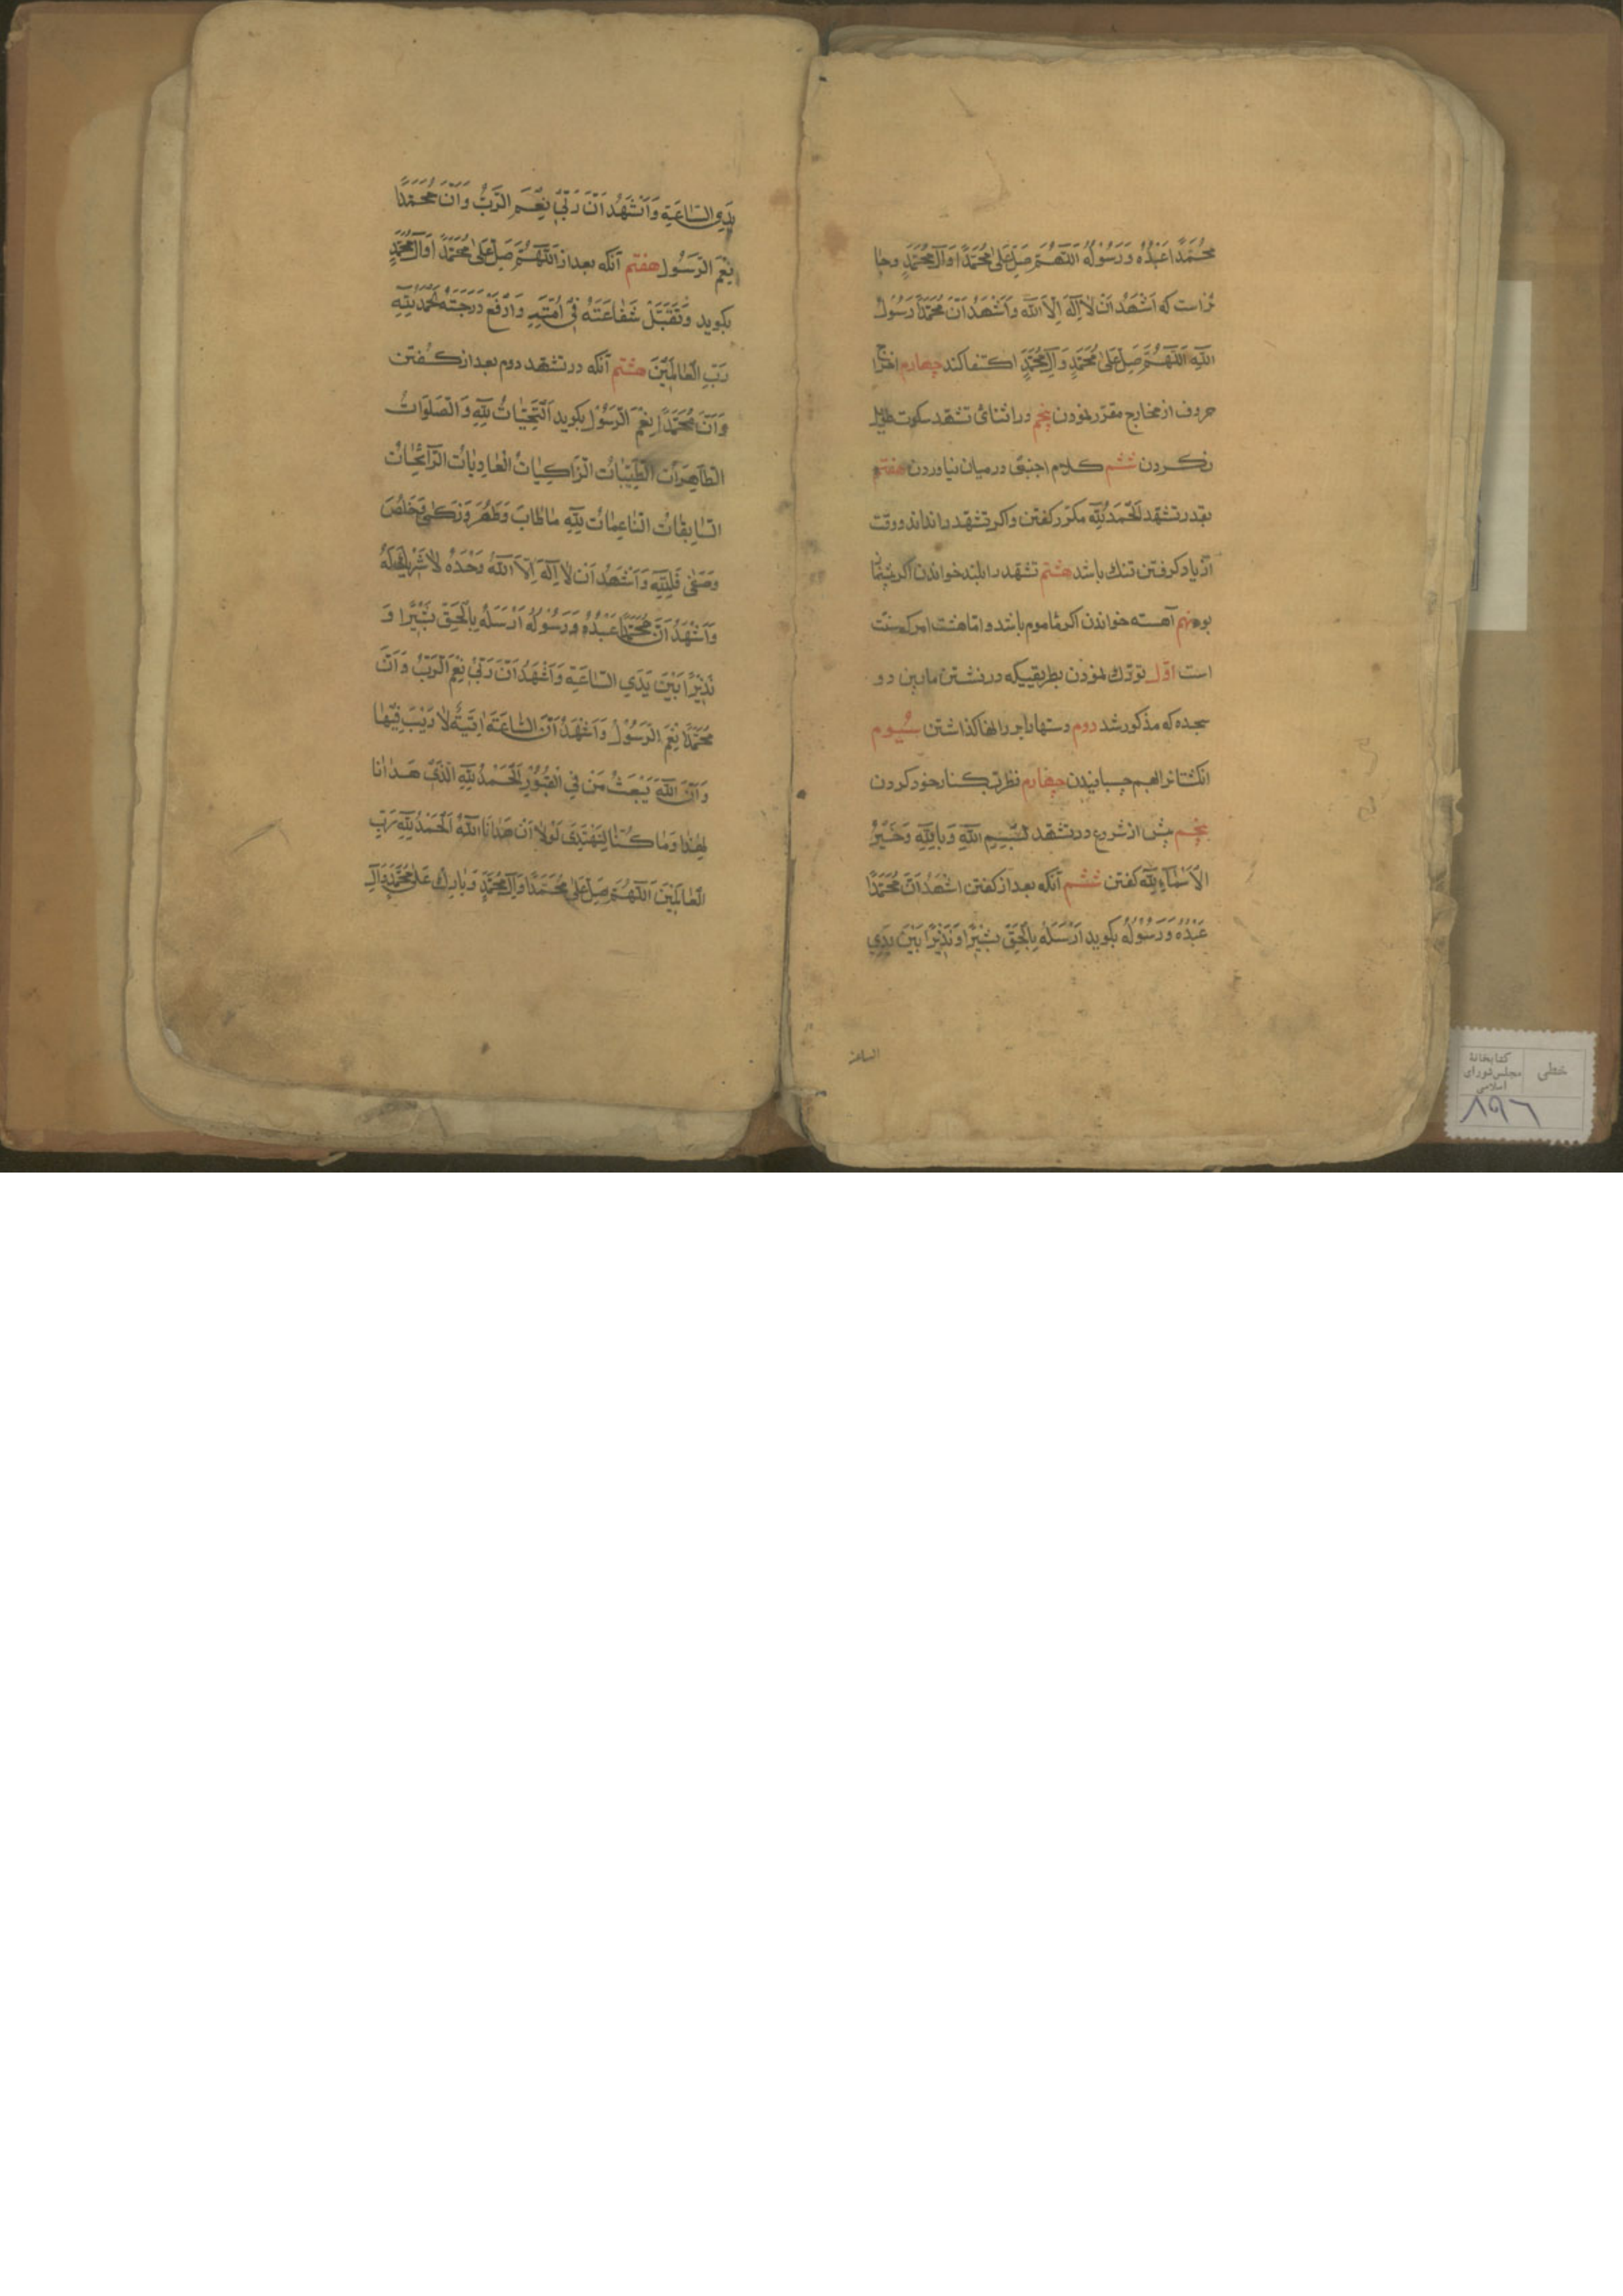 مُحَمَّدًا عَبْدُهُ وَرَسُولُهُ اَللّهُمَّ صَلِّ عَلىٰ مُحَمَّدٍ وَآلِ مُحَمَّدٍ وجا
ئزاست که اَشْهَدُ اَنْ لاٰ اِلٰهَ اِلاَّ اللّٰه وَاَشْهَدُ اَنَّ مُحَمَّدًا رَسُولُ
اللّٰهِ اَللّٰهُمَّ صَلِّ عَلىٰ مُحَمَّدٍ وَآلِ مُحَمَّدٍ اکتفا کند چهارم اخراج
حروف از مخارج مقرّر نمودن پنجم در اثنائ تشهد سکوت طویل
نکردن ششم کلام اجنبی در میان نیاوردن هفتم
بقدر تشهد اَلْحَمْدُ لِلّٰهِ مکرّر کفتن واکر تشهد را نداند ووقت
از یاد کرفتن تنك باشد هشتم تشهد را بلند خواندن اکر پیشنماز
بود نهم آهسته خواندن اکر مأموم باشد واما هشت امر که سنّت
است اوّل تورّك نمودن بطریقیکه در نشستن مابین دو
سجده که مذکور شد دوم دستها را بر رانها کذاشتن سیُوم
انکشتانرا بهم چسبانیدن چهارم نظر بکنار خود کردن
پنجم پیش از شروع در تشهد بِسْمِ اللّٰهِ وَبِاللّٰهِ وَخَیْرُ
الْاَسْمٰآءِ لِلّٰهِ کفتن ششم آنکه بعد از کفتن اشْهَدُ اَنَّ مُحَمَّدًا
عَبْدُهُ وَرَسُولُهُ بکوید اَرْسَلَهُ بِالْحَقِّ بَشیٖرًا وَنَذیٖرًا بَیْنَ یَدَیِ
الساعة
یَدَیِ السّٰاعَةِ وَاَشْهَدُ اَنَّ رَبّیٖ نِعْمَ الرَّبُّ وَاَنَّ مُحَمَّدًا
نِعْمَ الرَّسُولُ هفتم آنکه بعد از اَللّٰهُمَّ صَلِّ عَلىٰ مُحَمَّدٍ وَآلِ مُحَمَّدٍ
بکوید وَتَقَبَّلْ شَفٰاعَتَهُ فیٖ اُمَّتِهِ وَارْفَعْ دَرَجَتَهُ اَلْحَمْدُ لِلّٰهِ
رَبِّ الْعٰالَمیٖنَ هشتم آنکه در تشهد دوم بعد از کفتن
وَاَنَّ مُحَمَّدًا نِعْمَ الرَّسُولُ بکوید اَلتَّحِیّٰاتُ لِلّٰهِ وَالصَّلَوَاتُ
الطّٰاهِرٰاتُ الطَّیِّبٰاتُ الزّٰاکِیٰاتُ الْغٰادِیٰاتُ الرّٰائِحٰاتُ
السّٰابِغٰاتُ النّٰاعِمٰاتُ لِلّٰهِ مٰا طٰابَ وَطَهُرَ وَزَکىٰ وَخَلُصَ
وَصَفىٰ فَلِلّٰهِ وَاَشْهَدُ اَنْ لاٰ اِلٰهَ اِلاَّ اللّٰهُ وَحْدَهُ لاٰ شَریٖكَ لَهُ
وَاَشْهَدُ اَنَّ مُحَمَّدًا عَبْدُهُ وَرَسُولُهُ اَرْسَلَهُ بِالْحَقِّ بَشیٖرًا وَ
نَذیٖرًا بَیْنَ یَدَیِ السّٰاعَةِ وَاَشْهَدُ اَنَّ رَبّیٖ نِعْمَ الرَّبُّ وَاَنَّ
مُحَمَّدًا نِعْمَ الرَّسُولُ وَاَشْهَدُ اَنَّ السّٰاعَةَ اٰتِیَةٌ لاٰ رَیْبَ فیٖهٰا
وَاَنَّ اللّٰهَ یَبْعَثُ مَنْ فِی الْقُبُورِ اَلْحَمْدُ لِلّٰهِ الَّذیٖ هَدٰانٰا
لِهٰذٰا وَمٰا کُنّٰا لِنَهْتَدِیَ لَوْلاٰ اَنْ هَدٰانَا اللّٰهُ اَلْحَمْدُ لِلّٰهِ رَبِّ
الْعٰالَمیٖنَ اَللّٰهُمَّ صَلِّ عَلىٰ مُحَمَّدٍ وَآلِ مُحَمَّدٍ وَبٰارِكْ عَلىٰ مُحَمَّدٍ وَآلِ
خطی
کتابخانهٔ
مجلس شورای
اسلامی
۸۹۶